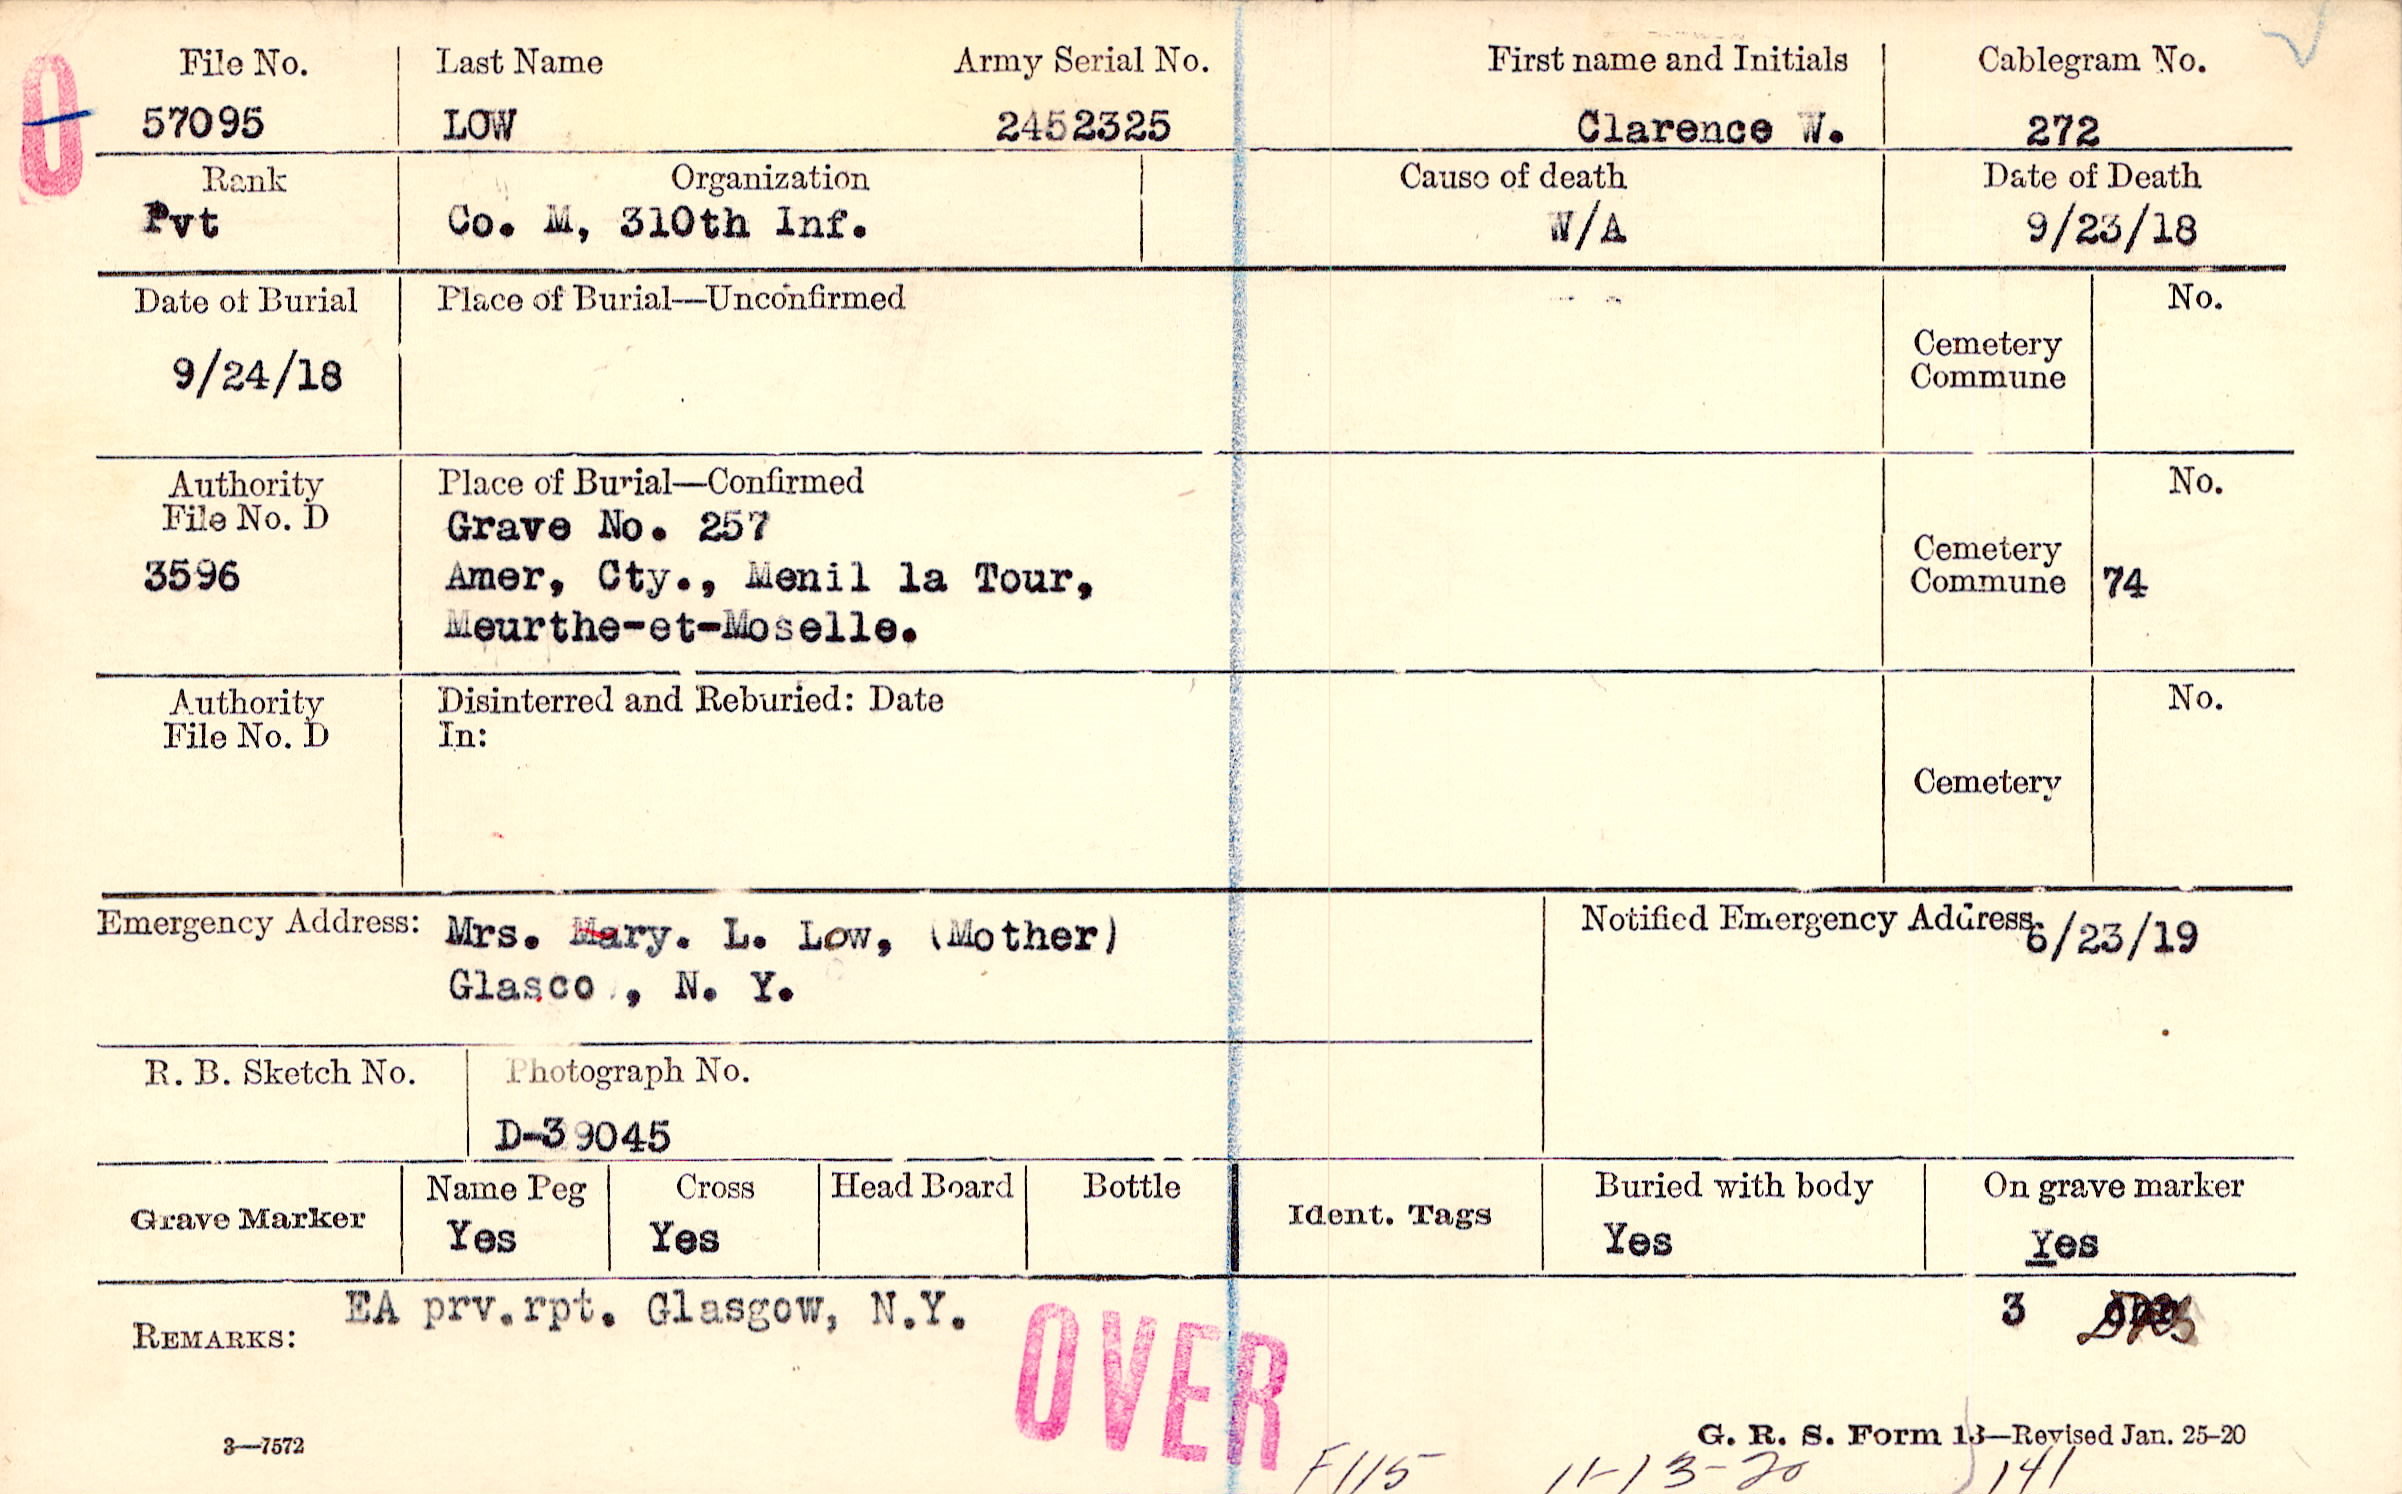 O
File No. Last Name Army Serial No. First name and Initials Cablegram No.
57095 LOW 2452325 Clarence W. 272
Rank Organization Cause of death Date of Death
Pvt Co. M, 310th Inf. W/A 9/23/18
Date of Burial Place of Burial—Unconfirmed No.
9/24/18
Cemetery
Commune
Authority Place of Burial—Confirmed No.
File No. D Grave No. 257
3596 Amer, Cty., Menil la Tour, Cemetery
Commune 74
Meurthe-et-Moselle.
Authority Disinterred and Reburied: Date No.
File No. D In:
Cemetery
Emergency Address: Mrs. Mary. L. Low, (Mother) Notified Emergency Address 6/23/19
Glasco , N. Y.
R. B. Sketch No. Photograph No.
D-39045
Grave Marker Name Peg Cross Head Board Bottle Ident. Tags Buried with body On grave marker
Yes Yes Yes Yes
EA prv.rpt. Glasgow, N.Y. 3
REMARKS:
OVER
3—7572 G. R. S. Form 13—Revised Jan. 25-20
F115 11-13-20 141